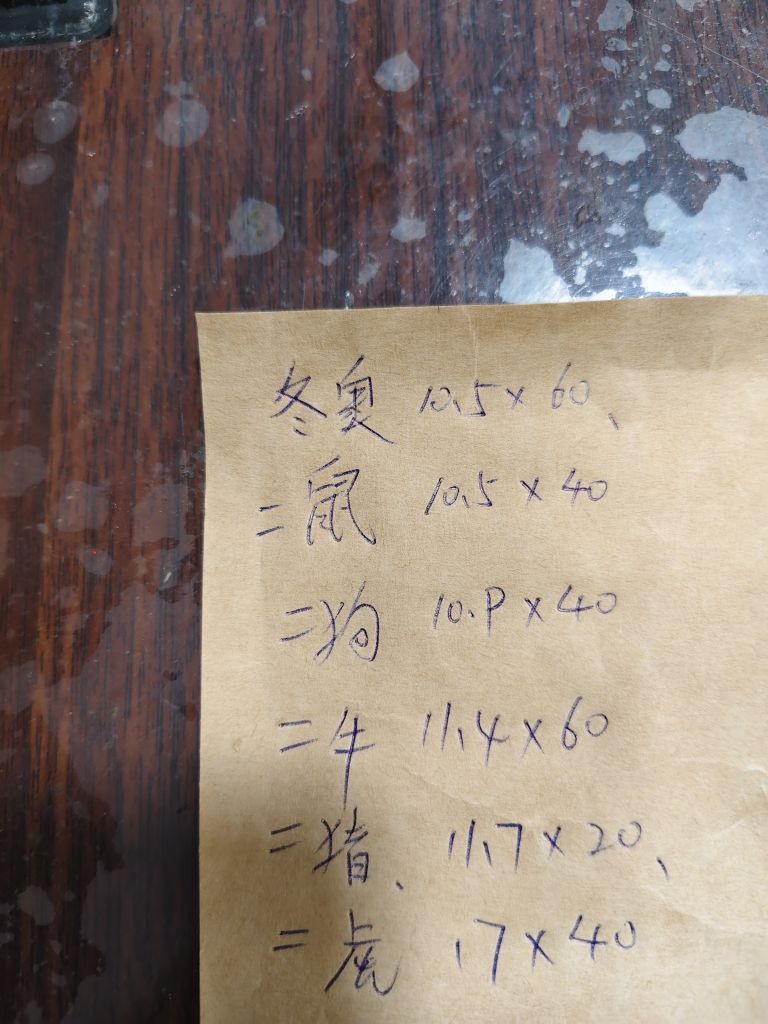 冬奥 10.5×60、
二鼠 10.5×40
二狗 10.9×40
二牛 11.4×60
二猪、11.7×20、
二虎 .17×40